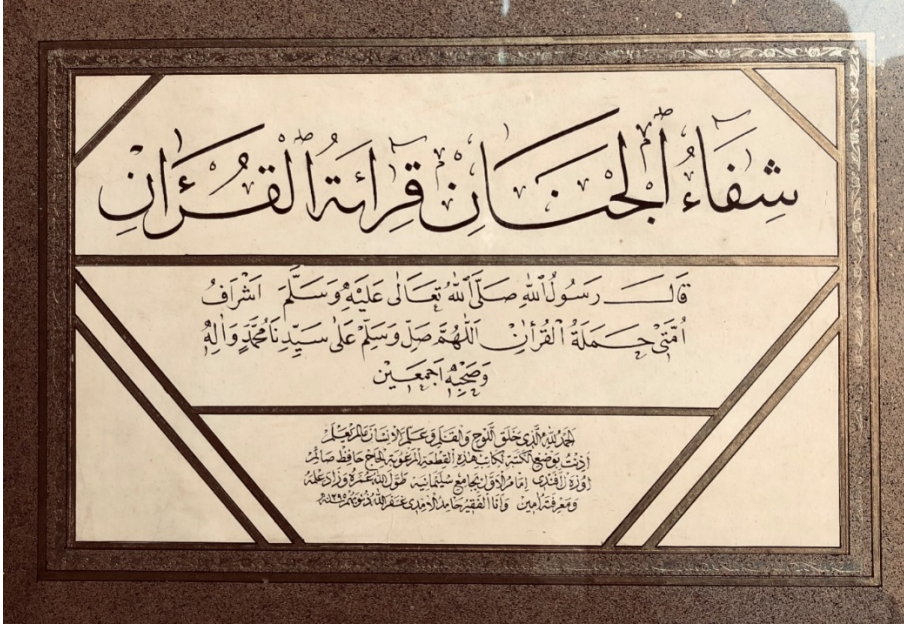 شِفَاءُ الْجَنَانِ قِرَائَةُ الْقُرْاٰنِ
قَالَ رَسُولُ اللهِ صَلَّى اللهُ تَعَالٰى عَلَيْهِ وَسَلَّمَ اَشْرَافُ
اُمَّتٖى حَمَلَةُ الْقُرْاٰنِ اَللّٰهُمَّ صَلِّ وَسَلِّمْ عَلٰى سَيِّدِنَا مُحَمَّدٍ وَاٰلِهٖ
وَصَحْبِهٖ اَجْمَعٖينَ
الحمد لله الذى خلق اللوح والقلم وعلم الانسان مالم يعلم
اذنت بوضع الكتبة لكاتب هذه القطعة المرغوبة الحاج حافظ صائم
اوزه ل افندى امام الاول بجامع سليمانية طول الله عمره وزاد علمه
ومعرفته امين وانا الفقير حامد الامدى غفر الله ذنوبهم ١٣٩٥